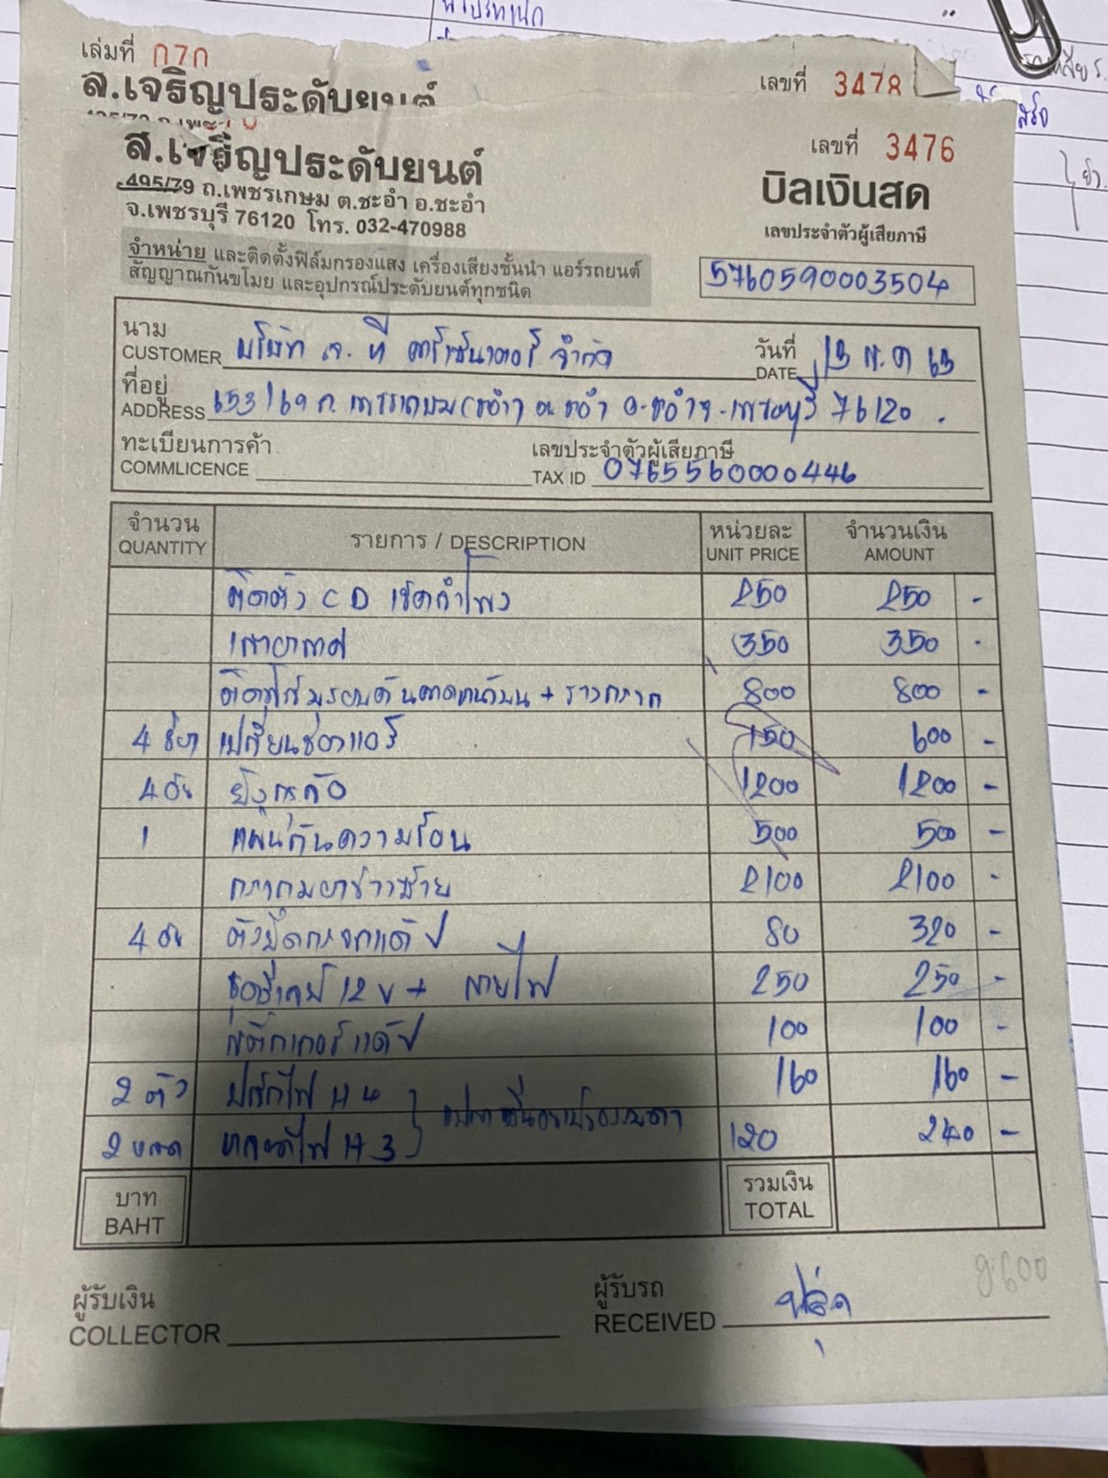 เล่มที่ 070
ส.เจริญประดับยนต์
เลขที่ 3478
ส.เจริญประดับยนต์
เลขที่ 3476
495/79 ถ.เพชรเกษม ต.ชะอำ อ.ชะอำ
จ.เพชรบุรี 76120 โทร. 032-470988
บิลเงินสด
เลขประจำตัวผู้เสียภาษี
5760590003504
จำหน่าย และติดตั้งฟิล์มกรองแสง เครื่องเสียงชั้นนำ แอร์รถยนต์
สัญญาณกันขโมย และอุปกรณ์ประดับยนต์ทุกชนิด
นาม
CUSTOMER บริษัท เจ. ที จำกัด
วันที่
DATE 13 พ.ค 63
ที่อยู่
ADDRESS 653/69 ถ. เพชรเกษม 76120
ทะเบียนการค้า
COMMLICENCE
เลขประจำตัวผู้เสียภาษี
TAX ID 0765560000446
จำนวน รายการ / DESCRIPTION หน่วยละ จำนวนเงิน
QUANTITY UNIT PRICE AMOUNT
ติดตั้ง CD เช็คลำโพง 250 250 -
เสาอากาศ 350 350 -
+ 800 800 -
4 เปลี่ยนช่องแอร์ 150 600 -
4 อัน 1200 1200 -
1 แผ่นกันความร้อน 500 500 -
2100 2100 -
4 อัน ตัวยึดกระจกแค้ป 80 320 -
12 V + สายไฟ 250 250 -
สติ๊กเกอร์แค้ป 100 100 -
2 ตัว ปลั๊กไฟ H4 160 160 -
2 หลอด หลอดไฟ H3 120 240 -
บาท
BAHT
รวมเงิน
TOTAL
ผู้รับเงิน
COLLECTOR
ผู้รับรถ
RECEIVED